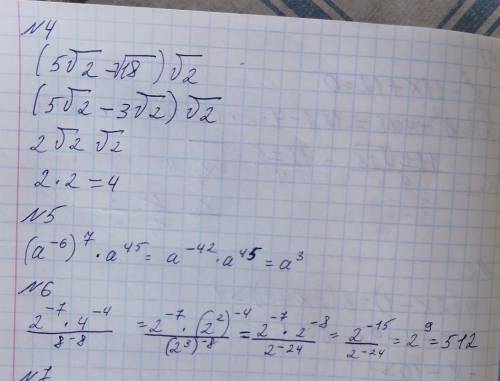 №4
(5√2 − √18)√2
(5√2 − 3√2)√2
2√2 √2
2 · 2 = 4
№5
(a⁻⁶)⁷ · a⁴⁵ = a⁻⁴² · a⁴⁵ = a³
№6
(2⁻⁷ · 4⁻⁴)/(8⁻⁸) = (2⁻⁷ · (2²)⁻⁴)/((2³)⁻⁸) = (2⁻⁷ · 2⁻⁸)/(2⁻²⁴) = (2⁻¹⁵)/(2⁻²⁴) = 2⁹ = 512
№7